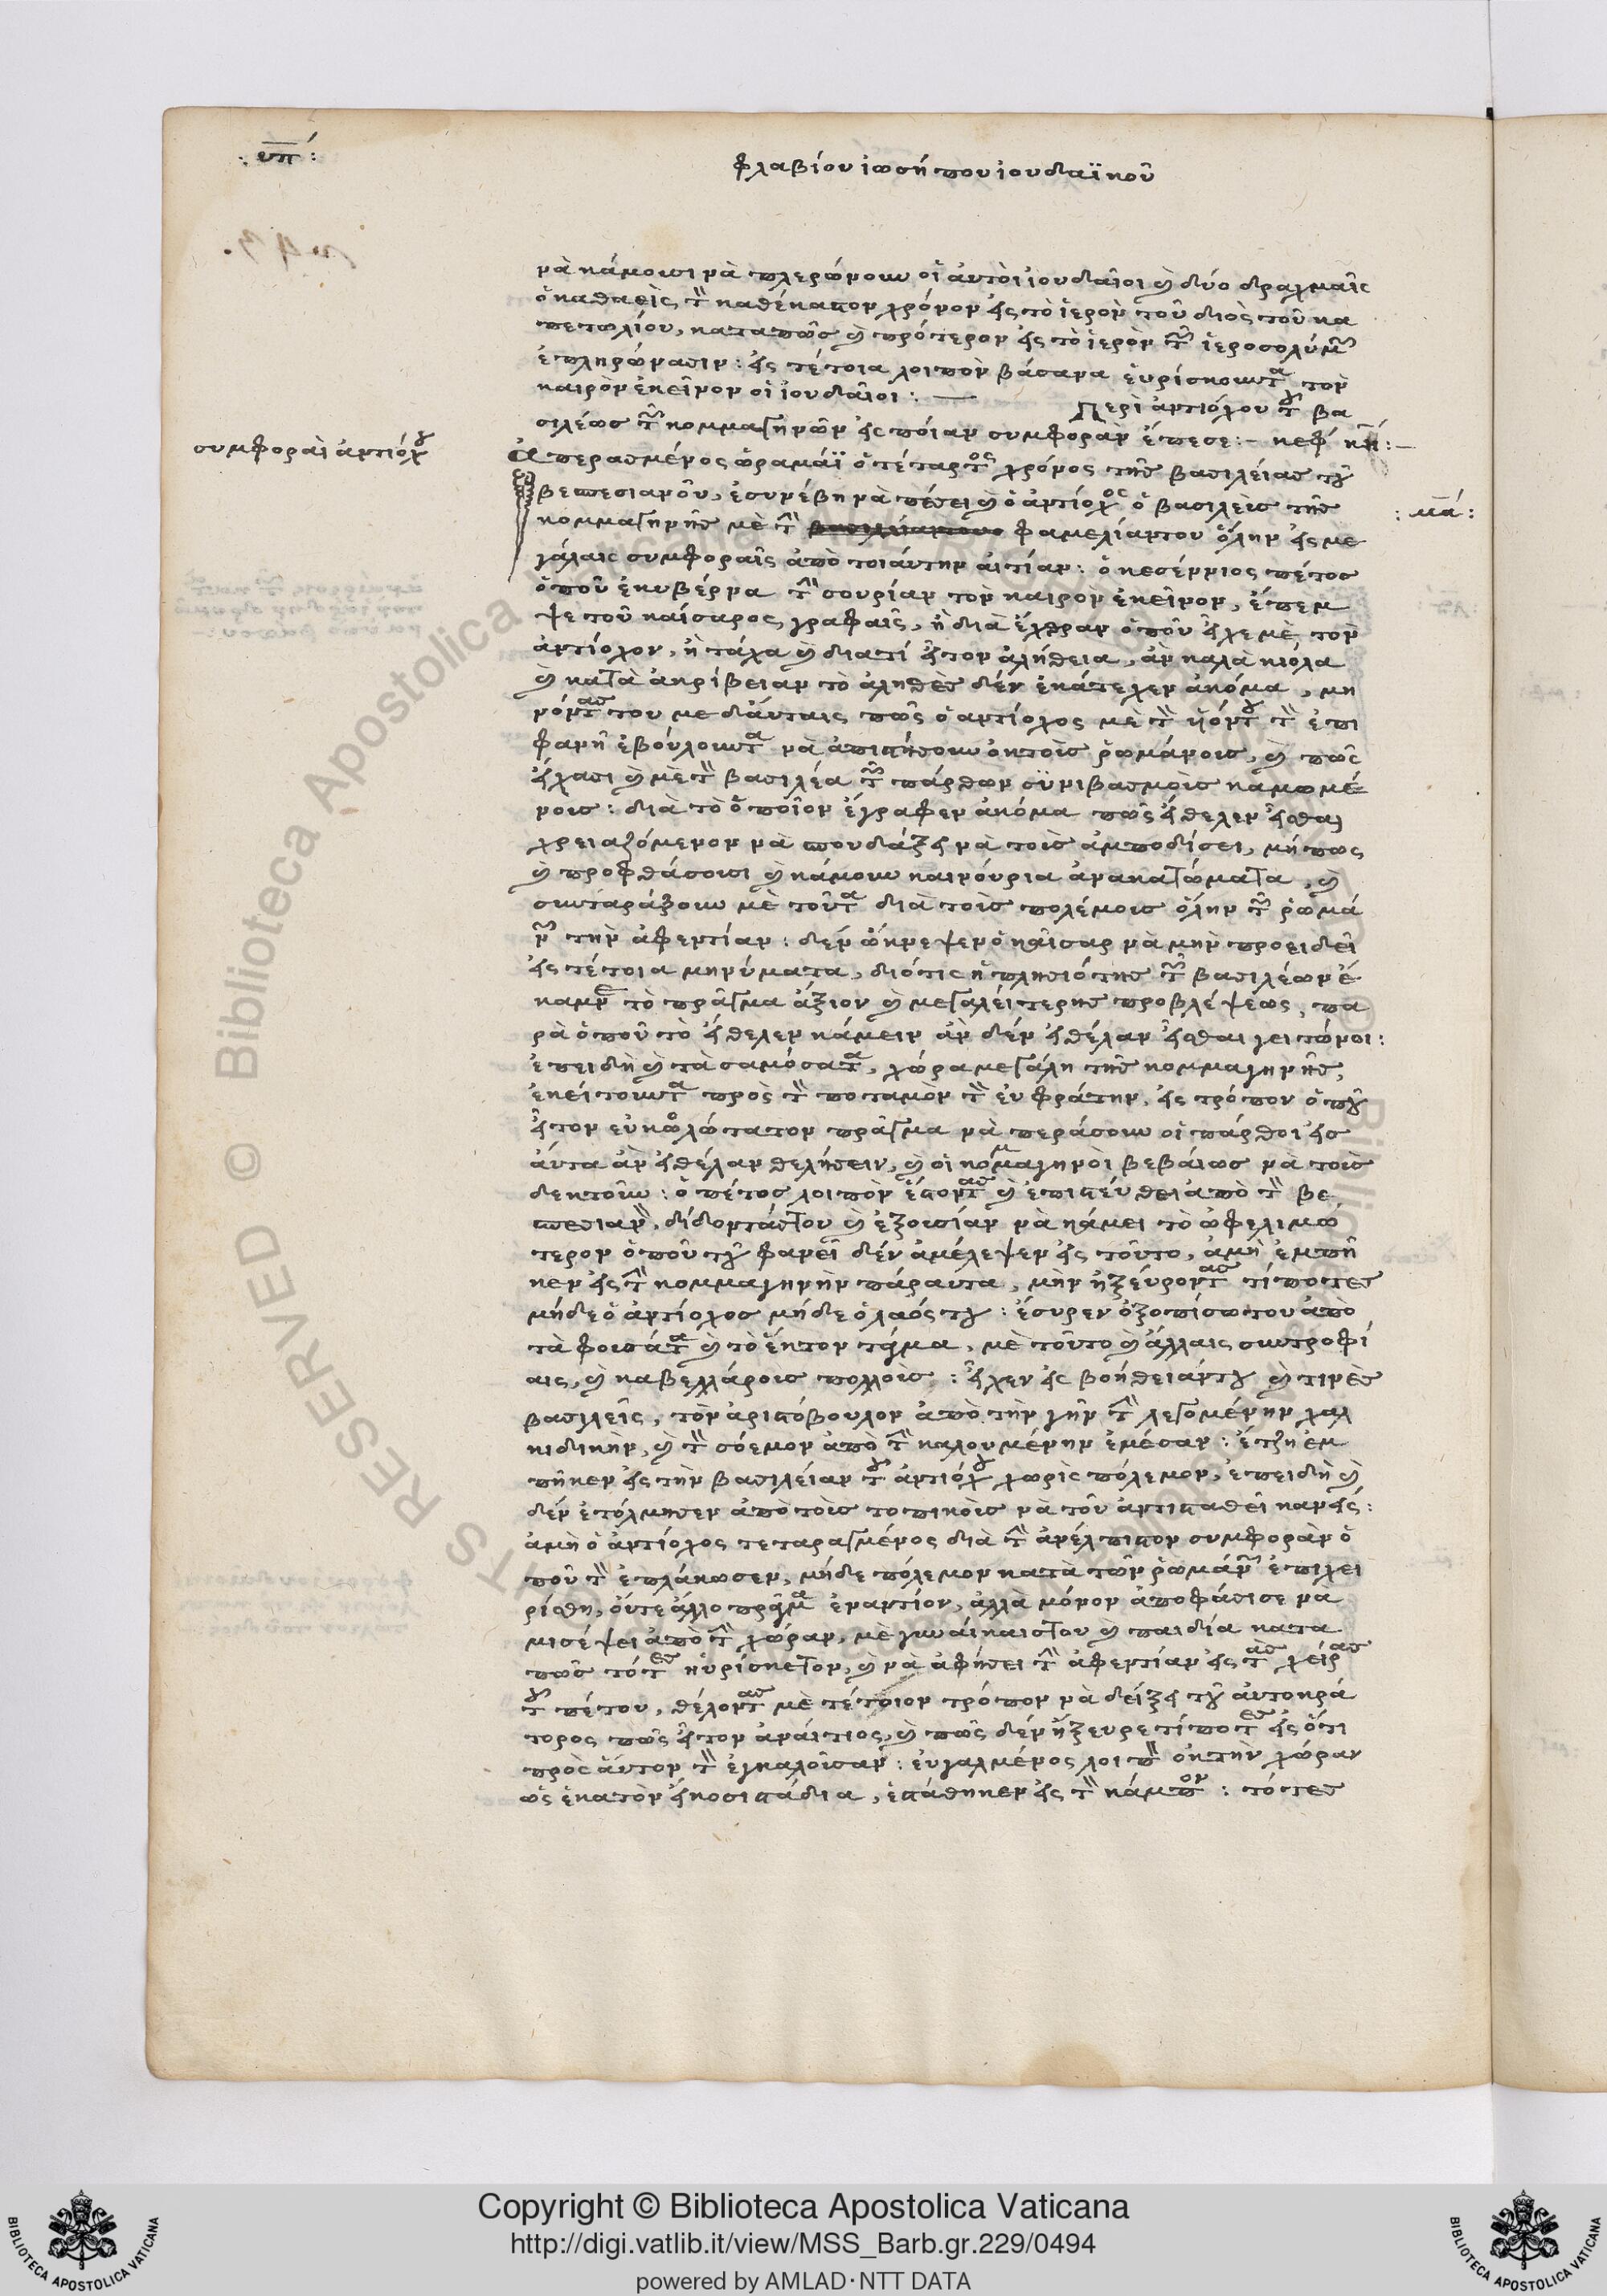 : υπ́ :
φλαβίου ἰωσήπου ἰουδαϊκοῦ
νὰ κάμουσι νὰ πλερώνουν οἱ ἀυτὸι ἰουδαῖοι ὲ δύο δραχμαῖς
ὁ καθαεὶς τ̀ καθέκαστον χρόνον εἰς τὸ ἱερὸν τοῦ διὸς τοῦ κα
πετωλίου, καταπῶς ὲ πρότερον εἰς τὸ ἱερὸν τ῀ ἱεροσολύμ῀
ἐπληρώνασιν : εἰς τέτοια λοιπὸν βάσανα ἑυρίσκουντα τὸν
καιρὸν ἐκεῖνον οἱ ἰουδαῖοι : —
Περὶ ἀντιόχου τ῀ βα
σιλέως τ῀ κομμαγηνῶν εἰς ποίαν συμφορὰν ἔπεσε :- κεφ κη :-
συμφοραὶ ἀντιόχου
Απερασμένος ὡραμάϊ ὁ τέταρτος χρόνος τῆς βασιλείας τοῦ
βεσπεσιανοῦ, ἐσυνέβη νὰ πέσει ὲ ὁ ἀντίοχος ὁ βασιλεὶς τῆς
: μά :
κομμαγηνῆς μὲ τ̀ φαμελίαντου ὅλην εἰς με
γάλαις συμφοραῖς ἀπὸ τοιάυτην ἀιτίαν : ὁ κεσέννιος πέτος
ὁποῦ ἐκυβέρνα τ̀ σουρίαν τὸν καιρὸν ἐκεῖνον, ἔπεμ
ψε τοῦ καίσαρος γραφαῖς, ἢ διὰ ἔχθραν ὁποῦ εἶχε μὲ τὸν
ἀντίοχον, ἢ τάχα ὲ διατί εἶτον ἀλήθεια, ἀν καλὰ κιόλα
ὲ κατὰ ἀκρίβειαν τὸ ἀληθὲς δέν ἐκάτεχεν ἀκόμα, μη
νόντας του με δάυταις πῶς ὁ αντίοχος μὲ τ̀ ὑόντου τ̀ ἐπι
φανῆ ἐβούλουντα νὰ ἀπιστήσουν ὀκτοὶς ῥωμάνοις, ὲ πῶς
εἴχασι ὲ μὲ τ̀ βασιλέα τ῀ πάρθων σϋνιβασμοὶς καμωμέ
νοις : διὰ τὸ ὁποῖον ἔγραφεν ἀκόμα πῶς εἴθελεν εἶσθαι
χρειαζόμενον νὰ σπουδάξει νὰ τοὶς ἀμποδίσει, μήπως
ὲ προφθάσουσι ὲ κάμουν καινούρια ἀνακατώματα, ὲ
συνταράξουν μὲ τοῦτα διὰ τοὶς πολέμοις ὅλην τ῀ ῥωμά
ν῀ τὴν ἀφεντίαν : δέν ὤκνεψεν ὁ καῖσαρ νὰ μὴν προειδεῖ
εἰς τέτοια μηνύματα, διότις ἡ πλησιότης τ῀ βασιλέων ἔ
καμνε τὸ πρᾶγμα ἄξιον ὲ μεγαλέιτερης προβλέψεως, πα
ρὰ ὁποῦ τὸ εἴθελεν κάμειν ἀν δέν εἰθέλαν εἶσθαι γειτώνοι :
ἐπειδὴ ὲ τὰ σαμόσατα, χώρα μεγάλη τῆς κομμαγηνῆς,
ἐκείτουντα πρὸς τ̀ ποταμὸν τ̀ ἐυφράτην, εἰς τρόπον ὁποῦ
εἶτον εὐκωλώτατον πρᾶγμα νὰ περάσουν οἱ πάρθοι εἰς
ἀύτα ἀν εἰθέλαν θελήσειν, ὲ οἱ κομμαγηνὸι βεβάιως νὰ τοὶς
δεκτοῦν : ὁ πέτος λοιπὸν ἔστοντας ὲ ἐπιστέυθει ἀπὸ τ̀ βε
σπεσιαν̀, δίδοντάςτου ὲ ἐξουσίαν νὰ κάμει τὸ ὠφελιμώ
τερον ὁποῦ τοῦ φανεῖ δέν ἀμέλεψεν εἰς τοῦτο, ἀμὴ ἐμπῆ
κεν εἰς τ̀ κομμαγηνὴν πάραυτα, μὴν ἠξέυροντας τίποτες
μήδε ὁ ἀντίοχος μήδε ὁ λαός του : ἔσυρεν ὀξοπίσωτου ἀπὸ
τὰ φουσάτα ὲ τὸ ἕκτον τάγμα, μὲ τοῦτο ὲ ἄλλαις συντροφί
αις, ὲ καβελλάροις πολλοὶς : εἶχεν εἰς βοήθειάντου ὲ τινὲς
βασιλεῖς, τὸν ἀριστόβουλον ἀπὸ τὴν γῆν τ̀ λεγομένην χαλ
κιδικὴν, ὲ τ̀ σόεμον ἀπὸ τ̀ καλουμένην ἐμέσαν : ἔτζη ἐμ
πῆκεν εἰς τὴν βασιλείαν τοῦ ἀντιόχου χωρὶς πόλεμον, ἐπειδὴ ὲ
δέν ἐτόλμησεν ἀπὸ τοὶς τοπικοὶς νὰ τοῦ ἀντισταθεῖ κανείς :
ἀμὴ ὁ ἀντίοχος τεταραγμένος διὰ τ̀ ἀνέλπιστον συμφορὰν ὁ
ποῦ τ̀ ἐπλάκωσεν, μήδε πόλεμον κατὰ τῶν ῥωμάν῀ ἐπιχει
ρίσθη, ὄυτε ἄλλο πράγμα ἐναντίον, ἀλλὰ μόνον ἀποφάσισε νὰ
μισέψει ἀπὸ τ̀ χώραν, μὲ γυνάικαιστου ὲ παιδία κατα
πῶς τότες ηὑρίσκετον, ὲ νὰ ἀφήσει τ̀ ἀφεντίαν εἰς τὰς χεῖρας
τοῦ πέτου, θέλοντας μὲ τέτοιον τρόπον νὰ δείξει τοῦ ἀυτοκρά
τορος πῶς εἶτον ἀνάιτιος, ὲ πῶς δέν ἤξευρε τίποτες εἰς ὅτι
πρὸς ἄυτον τ̀ ἐγκαλοῦσαν : ἐυγαλμένος λοιπ̀ ὀκ τὴν χώραν
ὡς ἑκατὸν εἴκοσι στάδια, ἐστάθηκεν εἰς τ̀ κάμπον : τότες
Copyright © Biblioteca Apostolica Vaticana
http://digi.vatlib.it/view/MSS_Barb.gr.229/0494
powered by AMLAD·NTT DATA
BIBLIOTECA APOSTOLICA VATICANA
BIBLIOTECA APOSTOLICA VATICANA